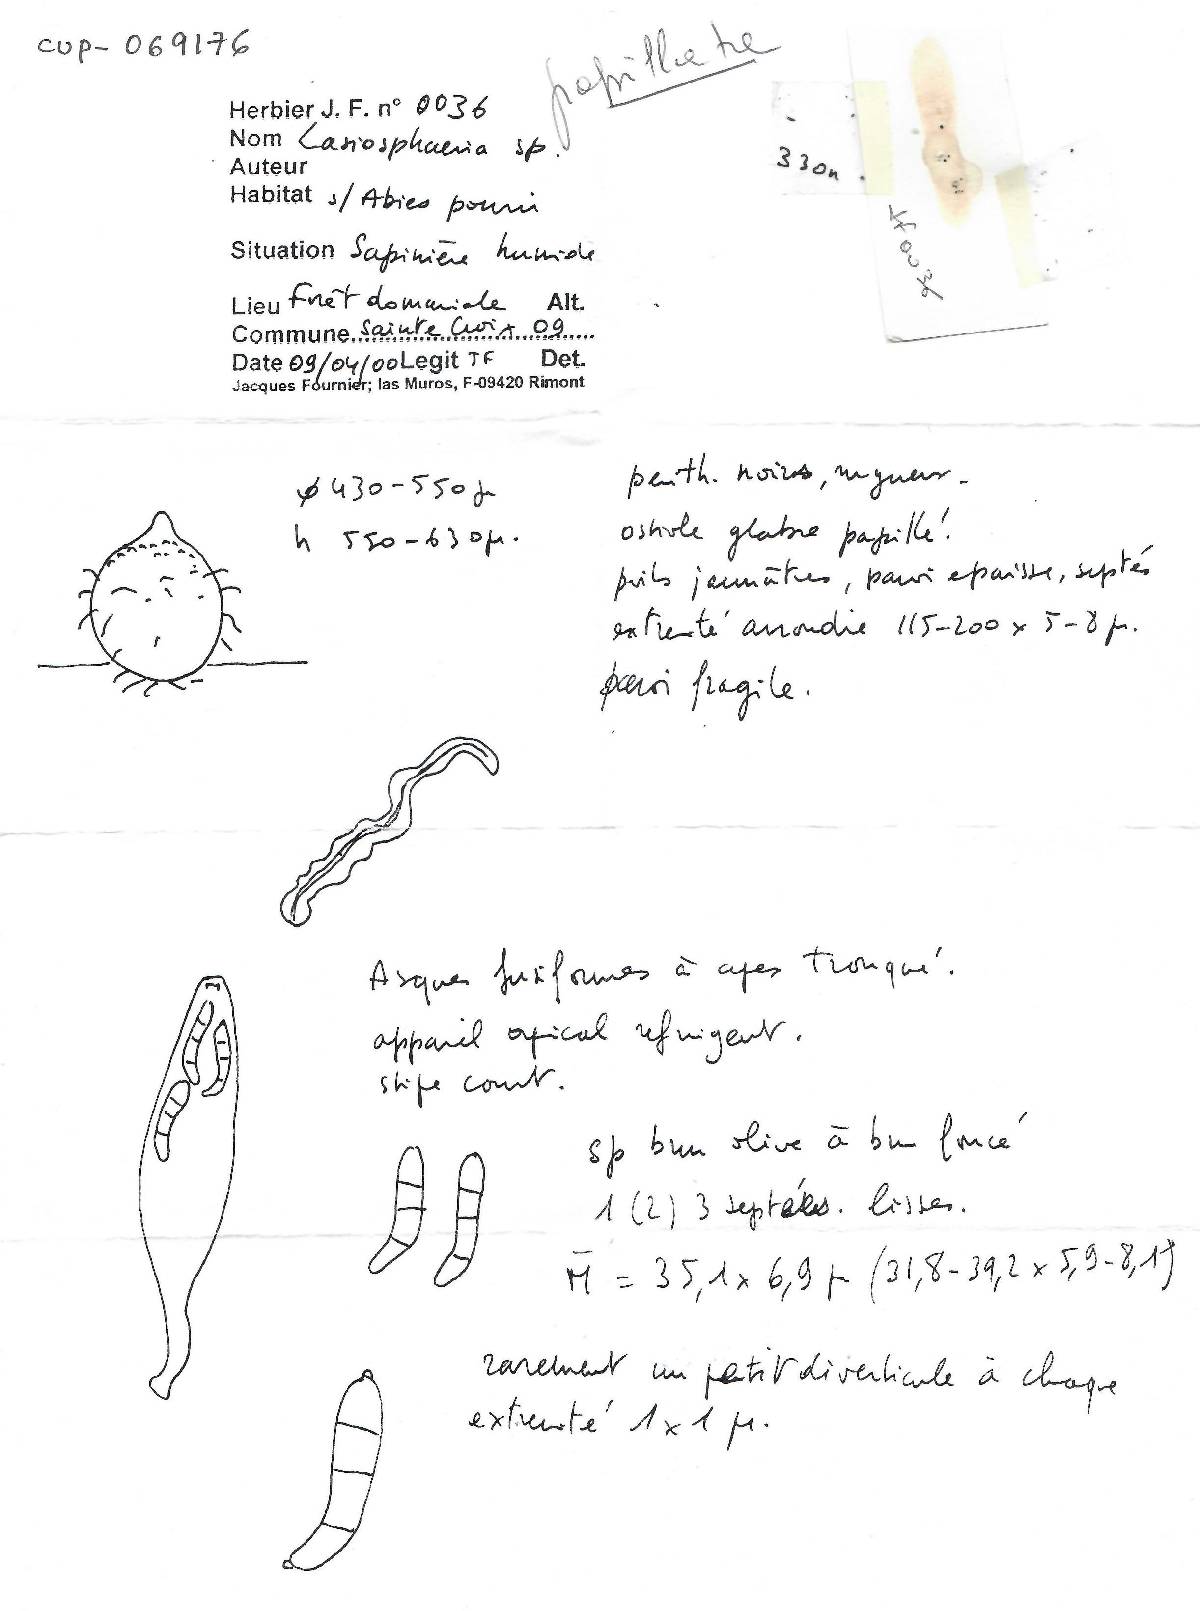 CUP-069176
papillata
Herbier J. F. n° 0036
Nom Lasiosphaeria sp.
Auteur
Habitat s/ Abies pourri
Situation Sapinière humide
Lieu Forêt domaniale Alt.
Commune Sainte Croix 09
Date 09/04/00 Legit JF Det.
Jacques Fournier; las Muros, F-09420 Rimont
JF0036
ø 430-550µ
h 550-630µ.
périth. noirs, rugueux.
ostiole glabre papillé.
poils jaunâtres, paroi epaisse, septés
extremité arrondie 115-200 x 5-8 µ.
paroi fragile.
Asques fusiformes à apex tronqué.
appareil apical refringent.
stipe court.
sp brun olive à brun foncé
1 (2) 3 septées. lisses.
M̄ = 35,1 x 6,9 µ (31,8-39,2 x 5,9-8,1)
rarement un petit diverticule à chaque
extremité 1 x 1 µ.